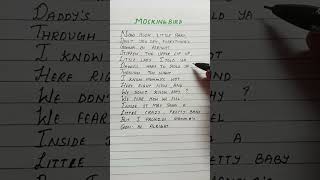 MOCKINGBIRD
NOW HUSH LITTLE BABY,
DON'T YOU CRY, EVERYTHING'S
GONNA BE ALRIGHT.
STIFFEN THE UPPER LIP UP
LITTLE LADY I TOLD YA
DADDY'S HERE TO HOLD YA
THROUGH THE NIGHT
I KNOW MOMMY'S NOT
HERE RIGHT NOW, AND
WE DON'T KNOW WHY?
WE FEAR HOW WE FEEL
INSIDE IT MAY SEEM A
LITTLE CRAZY, PRETTY BABY
BUT I PROMISE MOMMA'S
GON BE ALRIGHT
DADDY'S
THROUGH
I KNOW
HERE RIGH
WE DON'T
WE FEAR
INSIDE
LITTLE